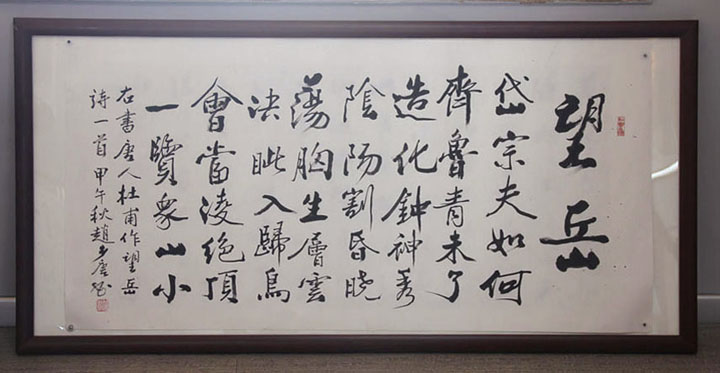 望岳
岱宗夫如何
齊魯青未了
造化鍾神秀
陰陽割昏晓
蕩胸生層雲
決眦入歸鳥
會當淩絕頂
一覽衆山小
右書唐人杜甫作望岳
詩一首 甲午秋趙